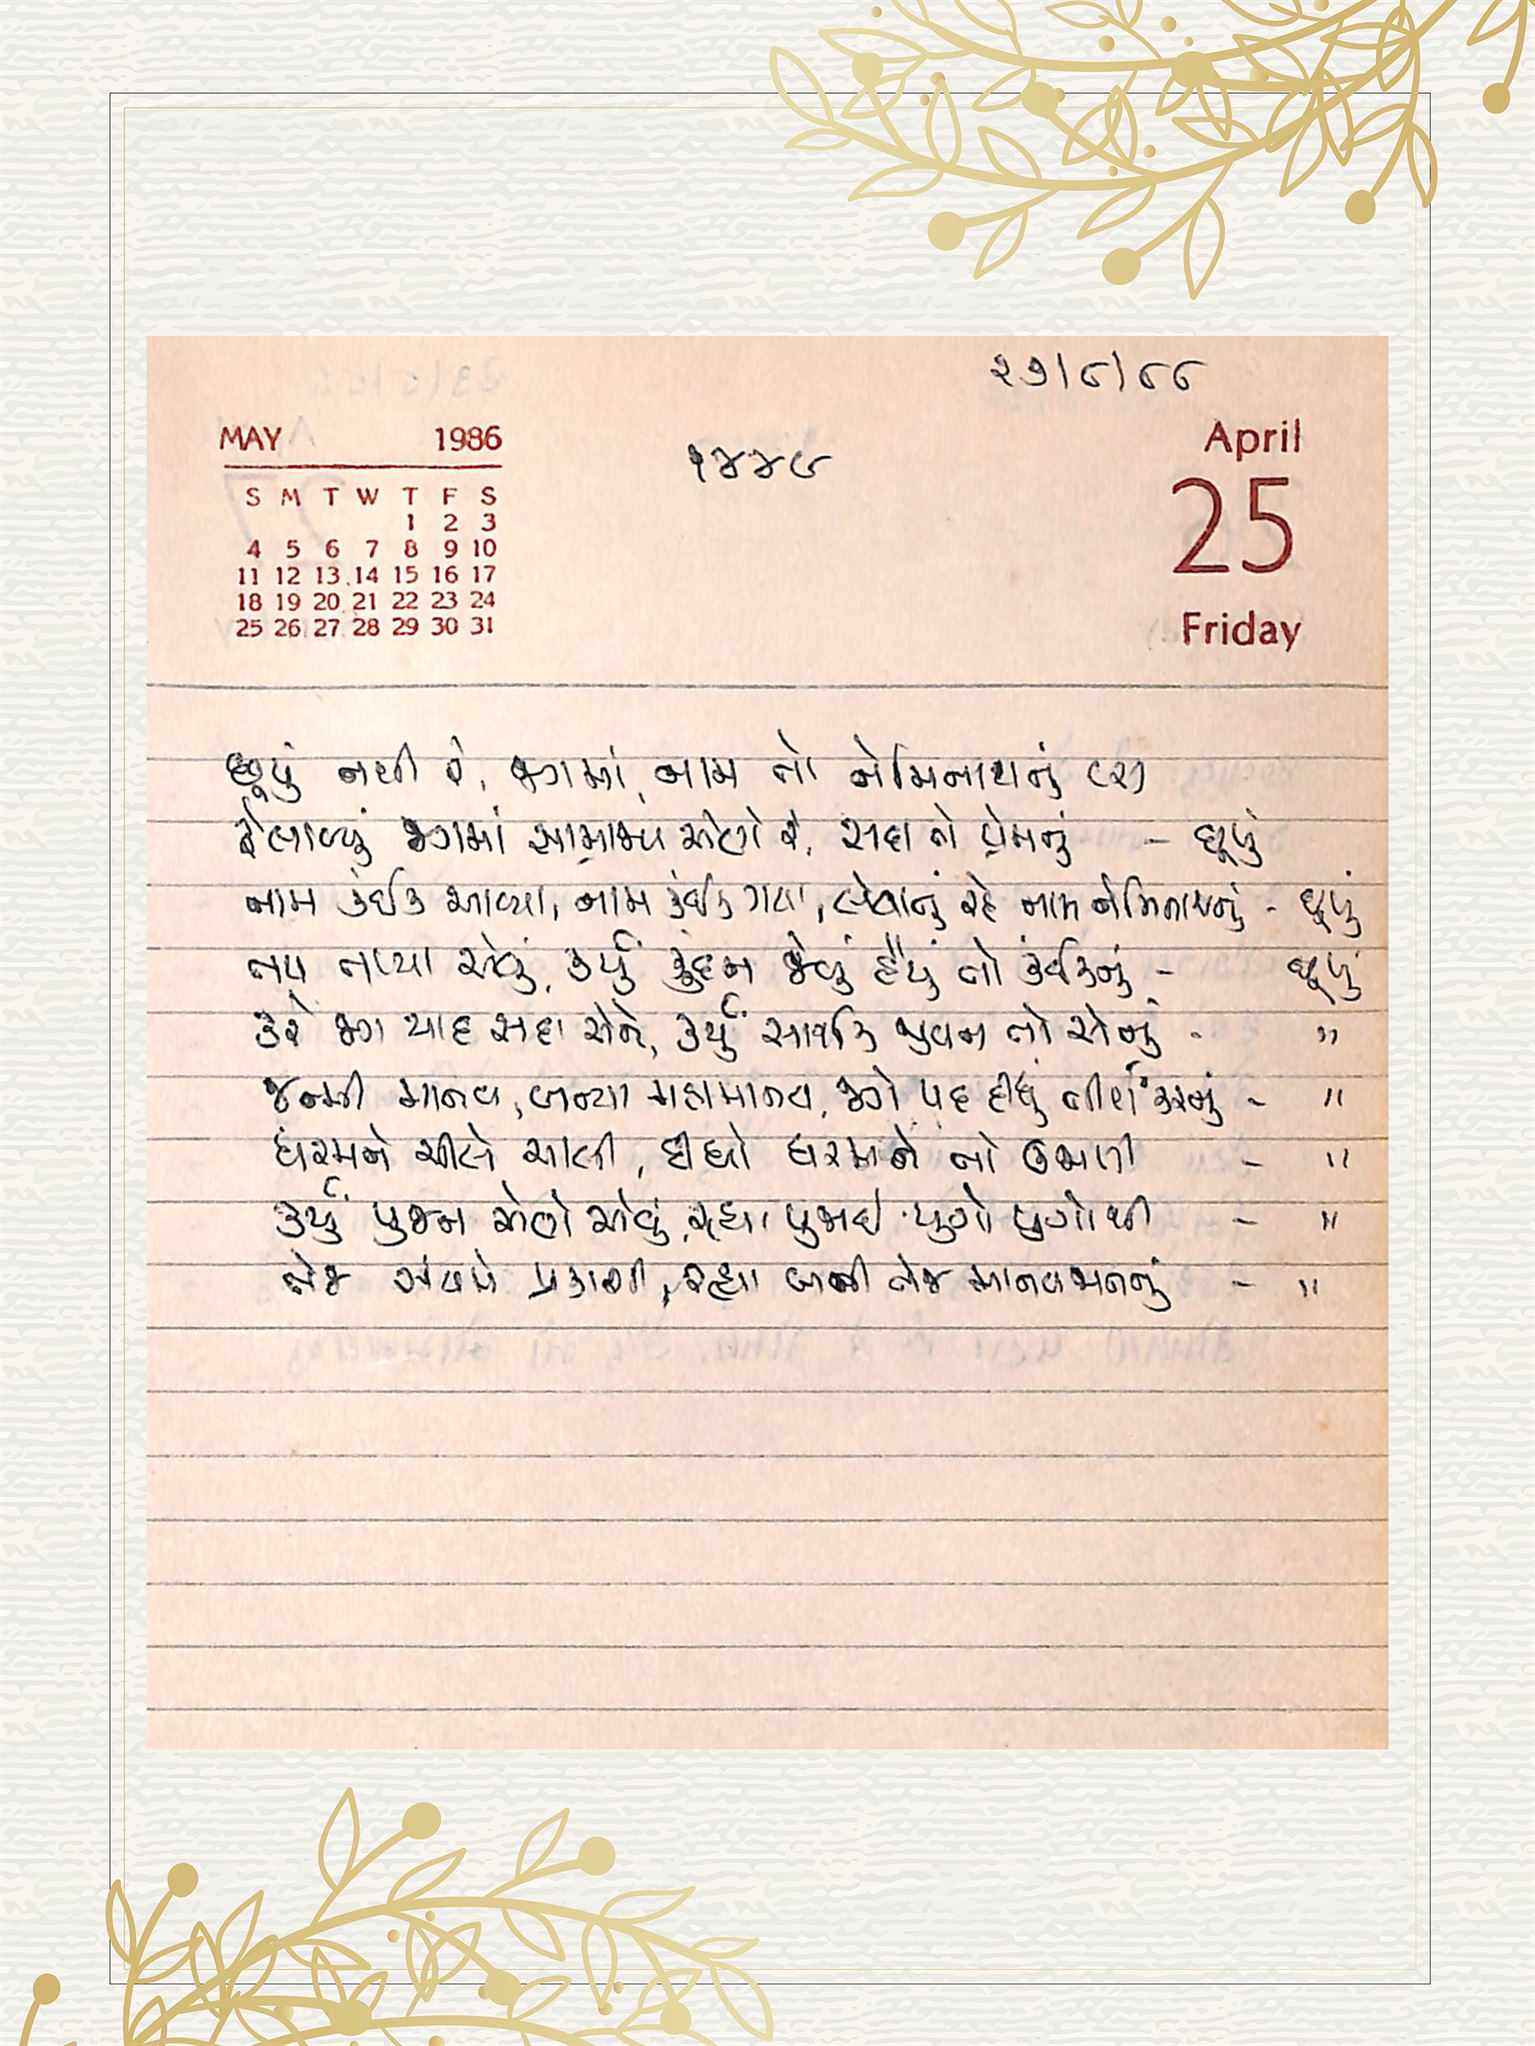 ૨૭/૮/૮૮
MAY 1986
૧૪૪૯
April
S M T W T F S
1 2 3
25
4 5 6 7 8 9 10
11 12 13 14 15 16 17
18 19 20 21 22 23 24
Friday
25 26 27 28 29 30 31
છૂપું નથી રે, જગમાં, નામ તો નેમિનાથનું (૨)
ફેલાવ્યું જગમાં સામ્રાજ્ય એણે રે, સદા તો પ્રેમનું - છૂપું
નામ કંઈક આવ્યા, નામ કંઈક ગયા, લેવાનું રહે નામ નેમિનાથનું - છૂપું
તપ તપ્યા એવું, કર્યું કુંદન જેવું હૈયું તો કંઈકનું - છૂપું
કરે જગ યાદ સદા એને, કર્યું સાર્થક જીવન તો એનું - "
જન્મી માનવ, બન્યા મહામાનવ, જગે પદ દીધું તીર્થંકરનું - "
ધરમને ચીલે ચાલી, દીધો ધરમને તો ઉજાળી - "
કર્યું પુજન એણે એવું, રહ્યા પુજાઈ યુગો યુગોથી - "
તેજ પ્રકાશી, રહ્યા બની તેજ માનવમનનું - "